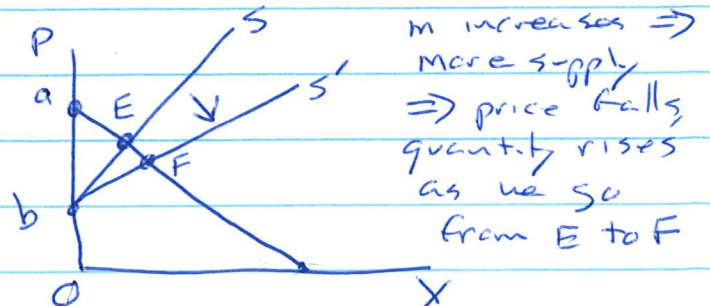 P
a
E
S
S'
F
b
O
X
m increases ⇒
more supply
⇒ price falls,
quantity rises
as we go
from E to F